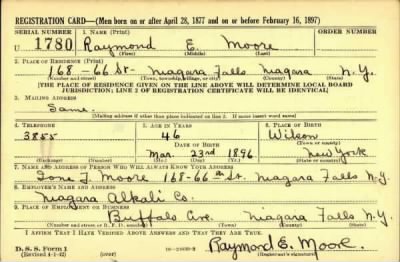 REGISTRATION CARD—(Men born on or after April 28, 1877 and on or before February 16, 1897)
SERIAL NUMBER 1. NAME (Print) ORDER NUMBER
U 1780 Raymond E. Moore
(First) (Middle) (Last)
2. PLACE OF RESIDENCE (Print)
168-66 St- Niagara Falls Niagara N.Y.
(Number and street) (Town, township, village, or city) (County) (State)
[THE PLACE OF RESIDENCE GIVEN ON THE LINE ABOVE WILL DETERMINE LOCAL BOARD
JURISDICTION; LINE 2 OF REGISTRATION CERTIFICATE WILL BE IDENTICAL]
3. MAILING ADDRESS
Same.
[Mailing address if other than place indicated on line 2. If same insert word same]
4. TELEPHONE 5. AGE IN YEARS 6. PLACE OF BIRTH
3855 46 Wilson
DATE OF BIRTH (Town or county)
Mar 23rd 1896 New York
(Exchange) (Number) (Mo.) (Day) (Yr.) (State or country)
7. NAME AND ADDRESS OF PERSON WHO WILL ALWAYS KNOW YOUR ADDRESS
Moore 168-66th St. Niagara Falls N.Y.
8. EMPLOYER'S NAME AND ADDRESS
Niagara Alkali Co.
9. PLACE OF EMPLOYMENT OR BUSINESS
Buffalo Ave. Niagara Falls N.Y.
(Number and street or R. F. D. number) (Town) (County) (State)
I AFFIRM THAT I HAVE VERIFIED ABOVE ANSWERS AND THAT THEY ARE TRUE.
D. S. S. Form 1
(Revised 4-1-42) (over) Raymond E. Moore.
(Registrant's signature)